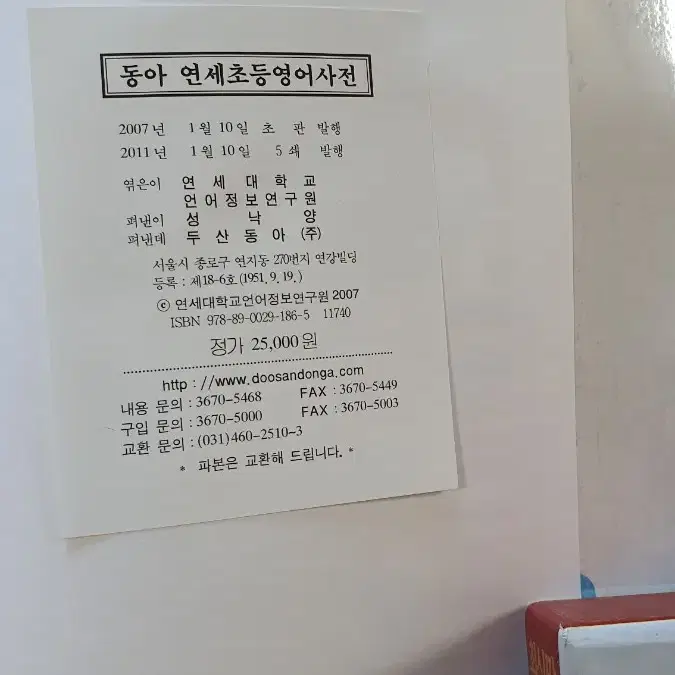 동아 연세초등영어사전
2007년 1월 10일 초 판 발행
2011년 1월 10일 5 쇄 발행
엮은이 연 세 대 학 교
언어정보연구원
펴낸이 성 낙 양
펴낸데 두 산 동 아 (주)
서울시 종로구 연지동 270번지 연강빌딩
등록 : 제18-6호 (1951. 9. 19.)
ⓒ 연세대학교언어정보연구원 2007
ISBN 978-89-0029-186-5 11740
정가 25,000원
http : //www.doosandonga.com
내용 문의 : 3670-5468 FAX : 3670-5449
구입 문의 : 3670-5000 FAX : 3670-5003
교환 문의 : (031)460-2510-3
* 파본은 교환해 드립니다. *